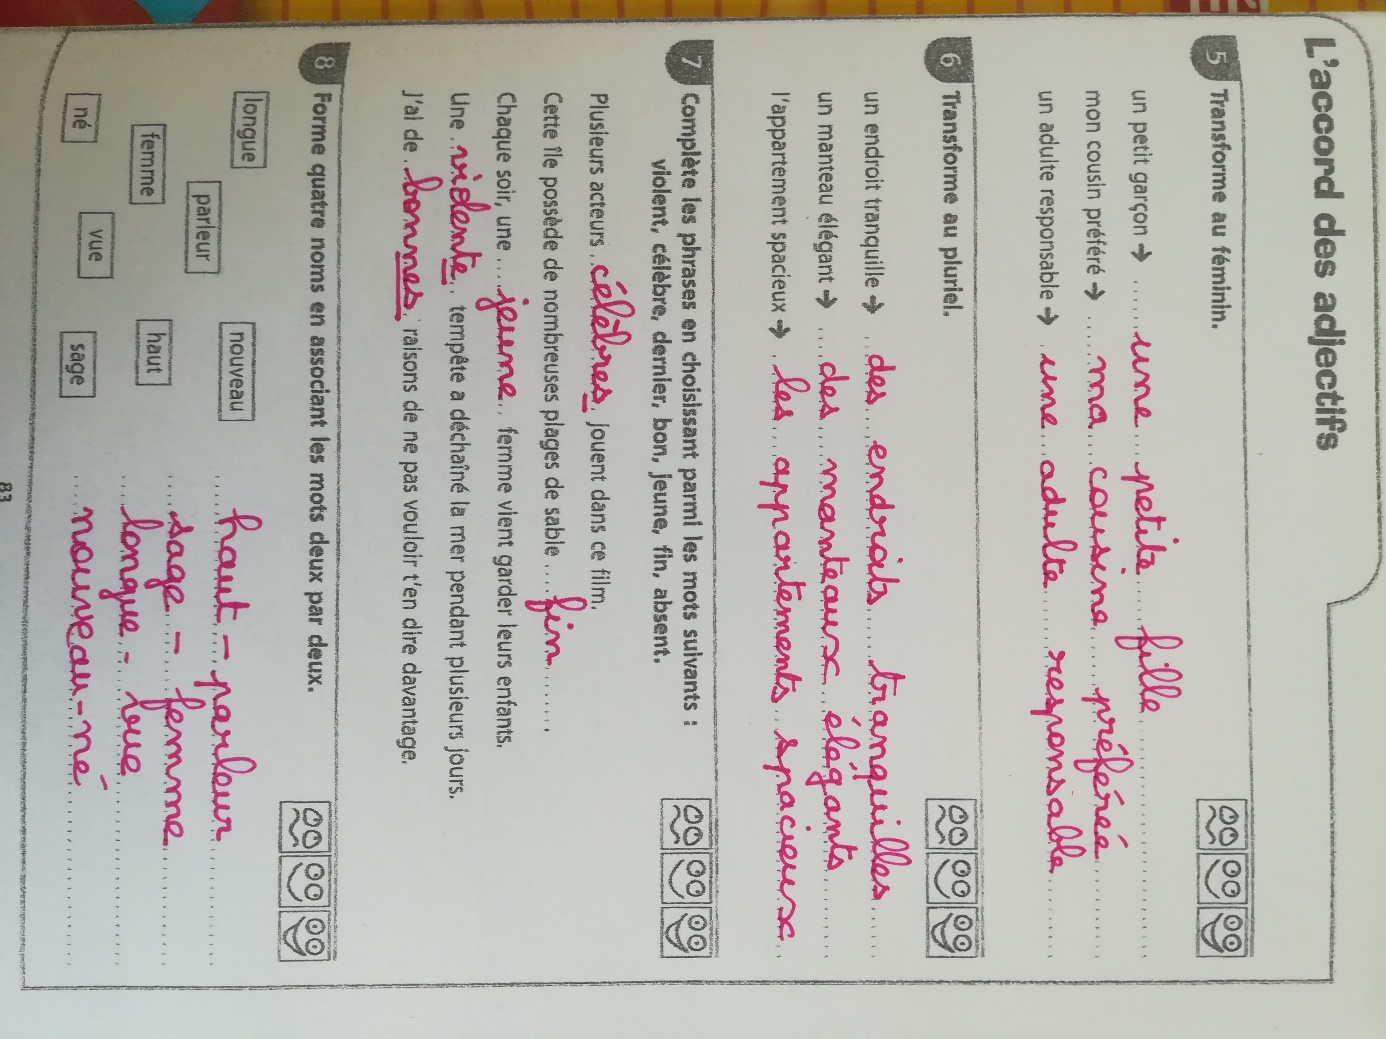 L'accord des adjectifs
5 Transforme au féminin.
un petit garçon → ...... une petite fille
mon cousin préféré → ...... ma cousine préférée
un adulte responsable → ... une adulte responsable
6 Transforme au pluriel.
un endroit tranquille → ... des endroits tranquilles
un manteau élégant → ... des manteaux élégants
l'appartement spacieux → .. les appartements spacieux
7 Complète les phrases en choisissant parmi les mots suivants :
violent, célèbre, dernier, bon, jeune, fin, absent.
Plusieurs acteurs célèbres jouent dans ce film.
Cette île possède de nombreuses plages de sable .... fin ........
Chaque soir, une .... jeune .. femme vient garder leurs enfants.
Une violente tempête a déchaîné la mer pendant plusieurs jours.
J'ai de bonnes raisons de ne pas vouloir t'en dire davantage.
8 Forme quatre noms en associant les mots deux par deux.
longue
parleur
nouveau
femme
haut
né
vue
sage
haut - parleur
sage - femme
longue - vue
nouveau - né
83